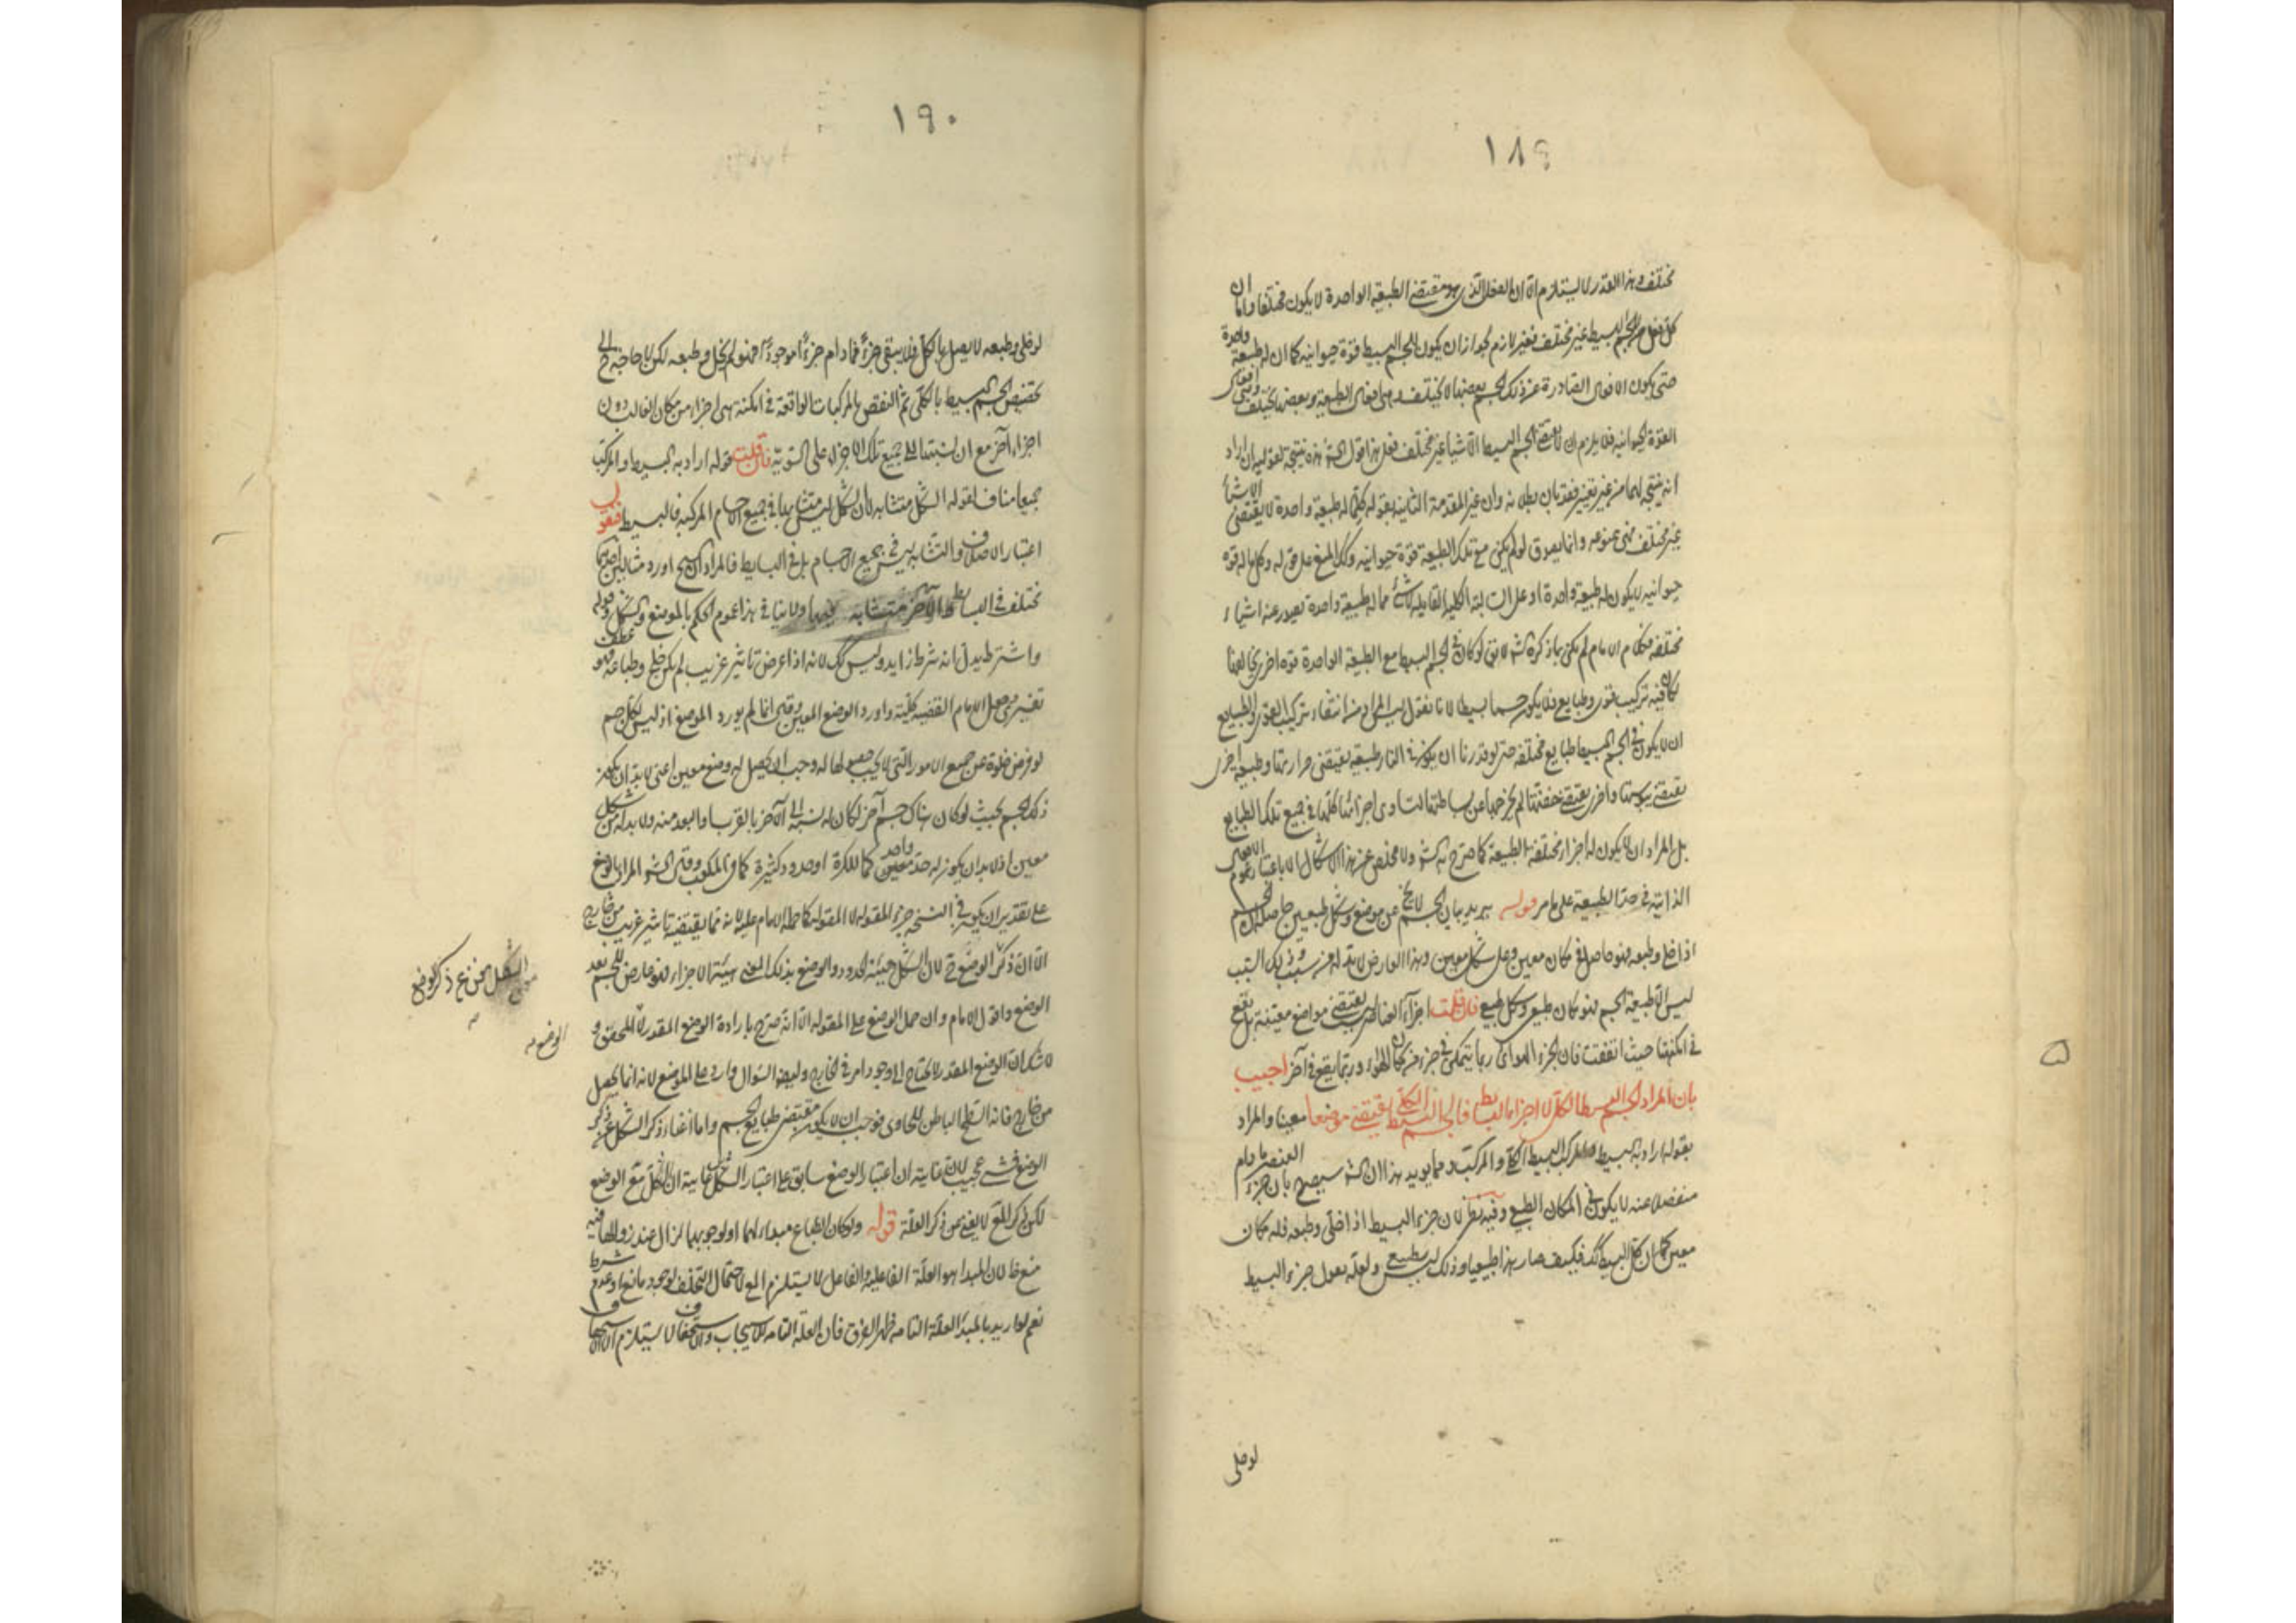 ١٨٩
مختلف وهذا القدر لا يستلزم الا ان الفعل الذى هو مقتضى الطبيعة الواحدة لا يكون مختلفا واما ان
كل فعل للجسم البسيط غير مختلف فغير لازم لجواز ان يكون للجسم البسيط قوة حيوانية كما ان له طبيعة واحدة
حتى يكون الافعال الصادرة عن ذلك الجسم بعضها لا يختلف وهى افعال الطبيعة وبعضها يختلف وهى افعال
القوة الحيوانية فلا يلزم ان لا يقتضى الجسم البسيط الا شيئا غير مختلف فعلى هذا قول الش هذه نتيجة لقوليه ان اراد
انه نتيجة لهما من غير تغيير فقد بان بطلانه وان غير المقدمة الثانية بقوله كلما له طبيعة واحدة لا يقتضى الا شيئا
غير مختلف فهى ممنوعة وانما يصدق لو لم يكن مع تلك الطبيعة قوة حيوانية وكك المنع على قوله وكل ما له قوة
حيوانية لا يكون له طبيعة واحدة او على السالبة الكلية القايلة لا شئ مما له طبيعة واحدة تصدر عنه اشياء
مختلفة فكلام الامام لم يكن ما ذكره الش لا يق لو كان فى الجسم البسيط مع الطبيعة الواحدة قوة اخرى يخالفها
لكان فيه تركيب قوى وطبايع فلا يكون جسما بسيطا لانا نقول ليس المراد من انتفاء تركيب القوى والطبايع
ان لا يكون فى الجسم البسيط طبايع مختلفة حتى لو قدرنا ان يكون فى النار طبيعة يقتضى حرارتها وطبيعة اخرى
يقتضى يبوستها واخرى يقتضى خفتها لم يخرجها عن بساطتها لتساوى اجزائها كلها فى جميع تلك الطبايع
بل المراد ان لا يكون له اجزاء مختلفة الطبيعة كما صرح به الش ولا مخلص عن هذا الاشكال الا باعتبار عموم الافعال
الذاتية فى حد الطبيعة على ما مر قوله يريد بيان الجسم لا يخ عن موضع وشكل طبيعيين حاصله ان الجسم
اذا خلى وطبعه فهو حاصل فى مكان معين وعلى شكل معين وهذا العارض لا بد له من سبب وذلك السبب
ليس الا طبيعة الجسم فهو مكان طبيعى وشكل طبيعى فان قلت اجزاء العناصر ليست يقتضى مواضع معينة بل تقع
فى امكنتها حيث اتفقت فان الجزء الهوائى ربما يتمكن فى جزء من مكان الهواء وربما يقع فى آخر اجيب
بان المراد الجسم البسيط الكلى لا اجزاء البسايط فالجسم البسيط الكلى يقتضى موضعا معينا والمراد
بقوله اراد به البسيط والمركب البسيط الكلى والمركب ومما يويد هذا ان الش سيصرح بان جزء العنصر ما دام
منفصلا عنه لا يكون فى المكان الطبيعى وفيه نظر لان جزء البسيط اذا خلى وطبعه فله مكان
معين كما ان كل البسيط كك فكيف صار هذا طبيعيا وذلك ليس بطبيعى ولعله يقول جزء البسيط
لو خلى
١٩٠
لو خلى وطبعه لا يصل بالكل فلا يبقى جزءً فما دام جزءً موجودًا فهو لم يخل وطبعه لكن لا حاجة ح الى
تخصيص الجسم البسيط بالكلى ثم النقض بالمركبات الواقعة فى امكنة هى اجزاء من مكان الغالب دون
اجزاء آخر مع ان نسبتها الى جميع تلك الاجزاء على السوية فان قلت قوله اراد به البسيط والمركب
جميعا مناف لقوله الشكل متشابه لان الشكل ليس متشابها فى جميع الاجسام المركبة فالبسيط فقو
اعتبار الاختلاف والتشابه ليس فى جميع الاجسام بل فى البسايط فالمراد اورد مثالين احدهما
مختلف فى البسايط والآخر متشابه فيها ولا ينافى هذا عموم الحكم بالموضع والشكل وقوله
واشترط يدل انه شرط زايد وليس كك لانه اذا عرض تاثير غريب لم يكن خلى وطباعه فهو عطف
تفسيرى جعل الامام القضية كلية واورد الوضع المعين وقيل انما لم يورد الموضع اذ ليس لكل جسم
لو فرض خلوه عن جميع الامور التى لا يجب حصولها له وجب ان يحصل له وضع معين اعنى لا بد ان يكون
ذلك الجسم بحيث لو كان هناك جسم آخر لكان له نسبة الى الآخر بالقرب او البعد منه ولا بد له من شكل
معين اذ لا بد ان يكون له حد واحد معين كما للكرة او حدود كثيرة كما فى المكعب وقيل الش المراد بالوضع
على تقدير ان يكون فى النسخة جزء المقولة لا المقولة كما حمله الامام عليه لانه مما يقتضيه تاثير غريب من خارج
الا ان ذكر الوضع ح لان الشكل هيئة الحدود والوضع بذلك المعنى هيئة الاجزاء فهو عارض للجسم بعد
الوضع واقول الامام وان حمل الوضع على المقولة الا انه صرح بارادة الوضع المقدر لا المحقق و
لا شك ان الوضع المقدر لا يحتاج الى وجود امر فى الخارج ولهذا السؤال وارد على الموضع لانه انما يحصل
من خارج فانه السطح الباطن للحاوى فوجب ان لا يكون مقتضى طبايع الجسم واما اغناء ذكر الشكل عن ذكر
الوضع فشئ عجيب لان غايته ان اعتبار الوضع سابق على اعتبار الشكل غايته ان الشكل مع الوضع
لكن ذكر المع لا يغنى عن ذكر العلة قوله ولو كان الطباع مبداء لهما او لوجوبهما لزال عند زوالهما فيه
منع ظ لان المبدا هو العلة الفاعلية والفاعل لا يستلزم المع لاحتمال التخلف لوجود مانع او عدم شرط
نعم لو اريد بالمبدأ العلة التامة ظهر الفرق فان العلة التامة للايجاب والاستحقاق لا يستلزم
الشكل مغن عن ذكر الوضع
الوضع